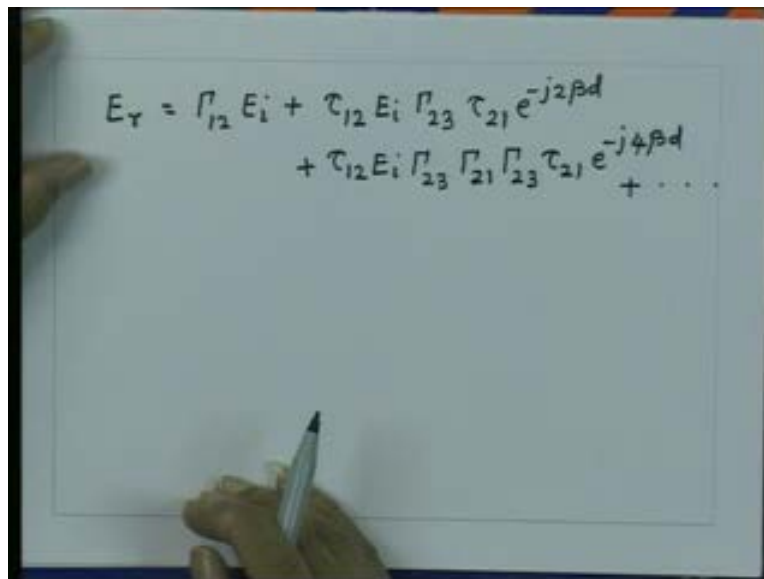 E_r = Γ_12 E_i + τ_12 E_i Γ_23 τ_21 e^{-j2βd}
+ τ_12 E_i Γ_23 Γ_21 Γ_23 τ_21 e^{-j4βd}
+ · · ·